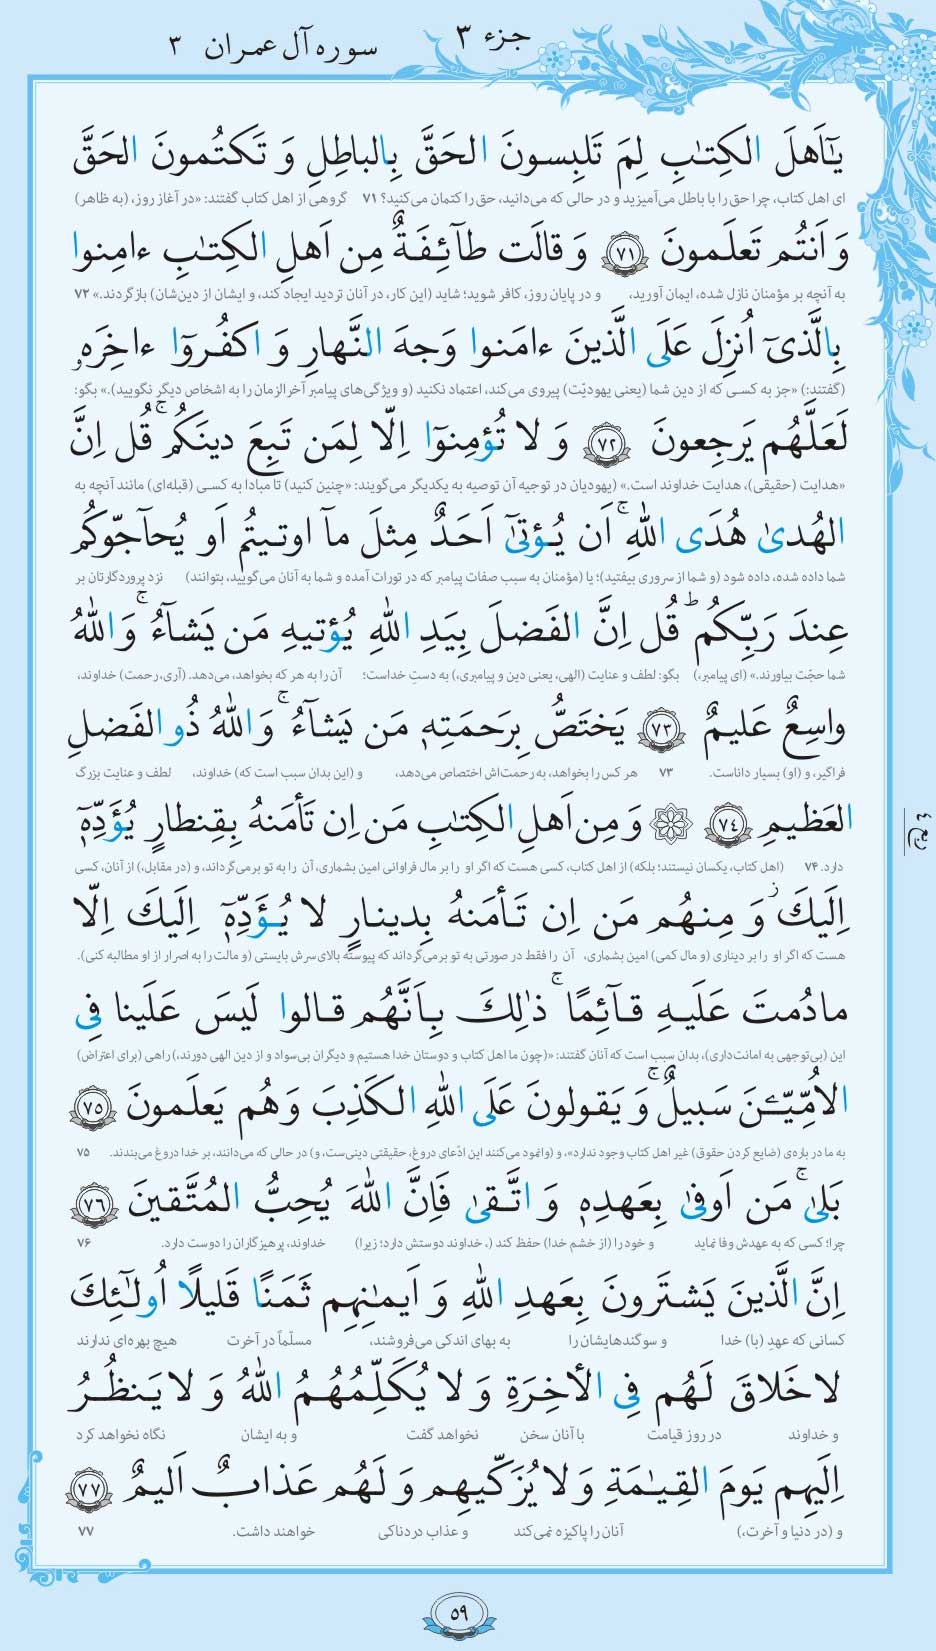 جزء ۳
سوره آل عمران ۳
يٰٓاَهلَ الكِتٰبِ لِمَ تَلبِسونَ الحَقَّ بِالباطِلِ وَ تَكتُمونَ الحَقَّ
ای اهل کتاب، چرا حق را با باطل می‌آمیزید و در حالی که می‌دانید، حق را کتمان می‌کنید؟ ۷۱ گروهی از اهل کتاب گفتند: «در آغاز روز، (به ظاهر)
وَ اَنتُم تَعلَمونَ ﴿۷۱﴾ وَ قالَت طآئِفَةٌ مِن اَهلِ الكِتٰبِ ءامِنوا
به آنچه بر مؤمنان نازل شده، ایمان آورید، و در پایان روز، کافر شوید؛ شاید (این کار، در آنان تردید ایجاد کند، و ایشان از دین‌شان) بازگردند.» ۷۲
بِالَّذىٓ اُنزِلَ عَلَى الَّذينَ ءامَنوا وَجهَ النَّهارِ وَ اكفُروٓا ءاخِرَهۥ
(گفتند:) «جز به کسی که از دین شما (یعنی یهودیّت) پیروی می‌کند، اعتماد نکنید (و ویژگی‌های پیامبر آخرالزمان را به اشخاص دیگر نگویید).» بگو:
لَعَلَّهُم يَرجِعونَ ﴿۷۲﴾ وَ لا تُؤمِنوٓا اِلّا لِمَن تَبِعَ دينَكُم ۚ قُل اِنَّ
«هدایت (حقیقی)، هدایت خداوند است.» (یهودیان در توجیه آن توصیه به یکدیگر می‌گویند: «چنین کنید) تا مبادا به کسی (قبله‌ای) مانند آنچه به
الهُدىٰ هُدَى اللهِ ۚ اَن يُؤتىٰٓ اَحَدٌ مِثلَ مآ اوتيتُم اَو يُحآجّوكُم
شما داده شده، داده شود (و شما از سروری بیفتید)؛ یا (مؤمنان به سبب صفات پیامبر که در تورات آمده و شما به آنان می‌گویید، بتوانند) نزد پروردگارتان بر
عِندَ رَبِّكُم ۗ قُل اِنَّ الفَضلَ بِيَدِ اللهِ يُؤتيهِ مَن يَشآءُ ۚ وَ اللهُ
شما حجّت بیاورند.» (ای پیامبر،) بگو: لطف و عنایت (الهی، یعنی دین و پیامبری،) به دستِ خداست؛ آن را به هر که بخواهد، می‌دهد. (آری، رحمت) خداوند،
واسِعٌ عَليمٌ ﴿۷۳﴾ يَختَصُّ بِرَحمَتِهٖ مَن يَشآءُ ۚ وَ اللهُ ذُو الفَضلِ
فراگیر، و (او) بسیار داناست. ۷۳ هر کس را بخواهد، به رحمت‌اش اختصاص می‌دهد، و (این بدان سبب است که) خداوند، لطف و عنایت بزرگ
العَظيمِ ﴿۷۴﴾ ۞ وَ مِن اَهلِ الكِتٰبِ مَن اِن تَأمَنهُ بِقِنطارٍ يُؤَدِّهٖٓ
دارد. ۷۴ (اهل کتاب، یکسان نیستند؛ بلکه) از اهل کتاب، کسی هست که اگر او را بر مال فراوانی امین بشماری، آن را به تو برمی‌گرداند، و (در مقابل،) از آنان، کسی
اِلَيكَ ۖ وَ مِنهُم مَن اِن تَأمَنهُ بِدينارٍ لا يُؤَدِّهٖٓ اِلَيكَ اِلّا
هست که اگر او را بر دیناری (و مال کمی) امین بشماری، آن را فقط در صورتی به تو برمی‌گرداند که پیوسته بالای‌سرش بایستی (و مالت را به اصرار از او مطالبه کنی).
مادُمتَ عَلَيهِ قآئِمًا ۚ ذٰلِكَ بِاَنَّهُم قالوا لَيسَ عَلَينا فِى
این (بی‌توجهی به امانت‌داری)، بدان سبب است که آنان گفتند: «(چون ما اهل کتاب و دوستان خدا هستیم و دیگران بی‌سواد و از دین الهی دورند،) راهی (برای اعتراض)
الاُمِّيّـۧنَ سَبيلٌ ۚ وَ يَقولونَ عَلَى اللهِ الكَذِبَ وَ هُم يَعلَمونَ ﴿۷۵﴾
به ما در باره‌ی (ضایع کردن حقوق) غیر اهل کتاب وجود ندارد»، و (وانمود می‌کنند این ادّعای دروغ، حقیقتی دینی‌ست، و) در حالی که می‌دانند، بر خدا دروغ می‌بندند. ۷۵
بَلىٰ ۚ مَن اَوفىٰ بِعَهدِهٖ وَ اتَّقىٰ فَاِنَّ اللهَ يُحِبُّ المُتَّقينَ ﴿۷۶﴾
چرا؛ کسی که به عهدش وفا نماید و خود را (از خشم خدا) حفظ کند (، خداوند دوستش دارد؛ زیرا) خداوند، پرهیزگاران را دوست دارد. ۷۶
اِنَّ الَّذينَ يَشتَرونَ بِعَهدِ اللهِ وَ اَيمٰنِهِم ثَمَنًا قَليلًا اُولٰٓئِكَ
کسانی که عهدِ (با) خدا و سوگندهایشان را به بهای اندکی می‌فروشند، مسلّماً در آخرت هیچ بهره‌ای ندارند
لا خَلاقَ لَهُم فِى الأخِرَةِ وَ لا يُكَلِّمُهُمُ اللهُ وَ لا يَنظُرُ
و خداوند در روز قیامت با آنان سخن نخواهد گفت و به ایشان نگاه نخواهد کرد
اِلَيهِم يَومَ القِيٰمَةِ وَ لا يُزَكّيهِم وَ لَهُم عَذابٌ اَليمٌ ﴿۷۷﴾
و (در دنیا و آخرت،) آنان را پاکیزه نمی‌کند و عذاب دردناکی خواهند داشت. ۷۷
ربع ٤
۵۹